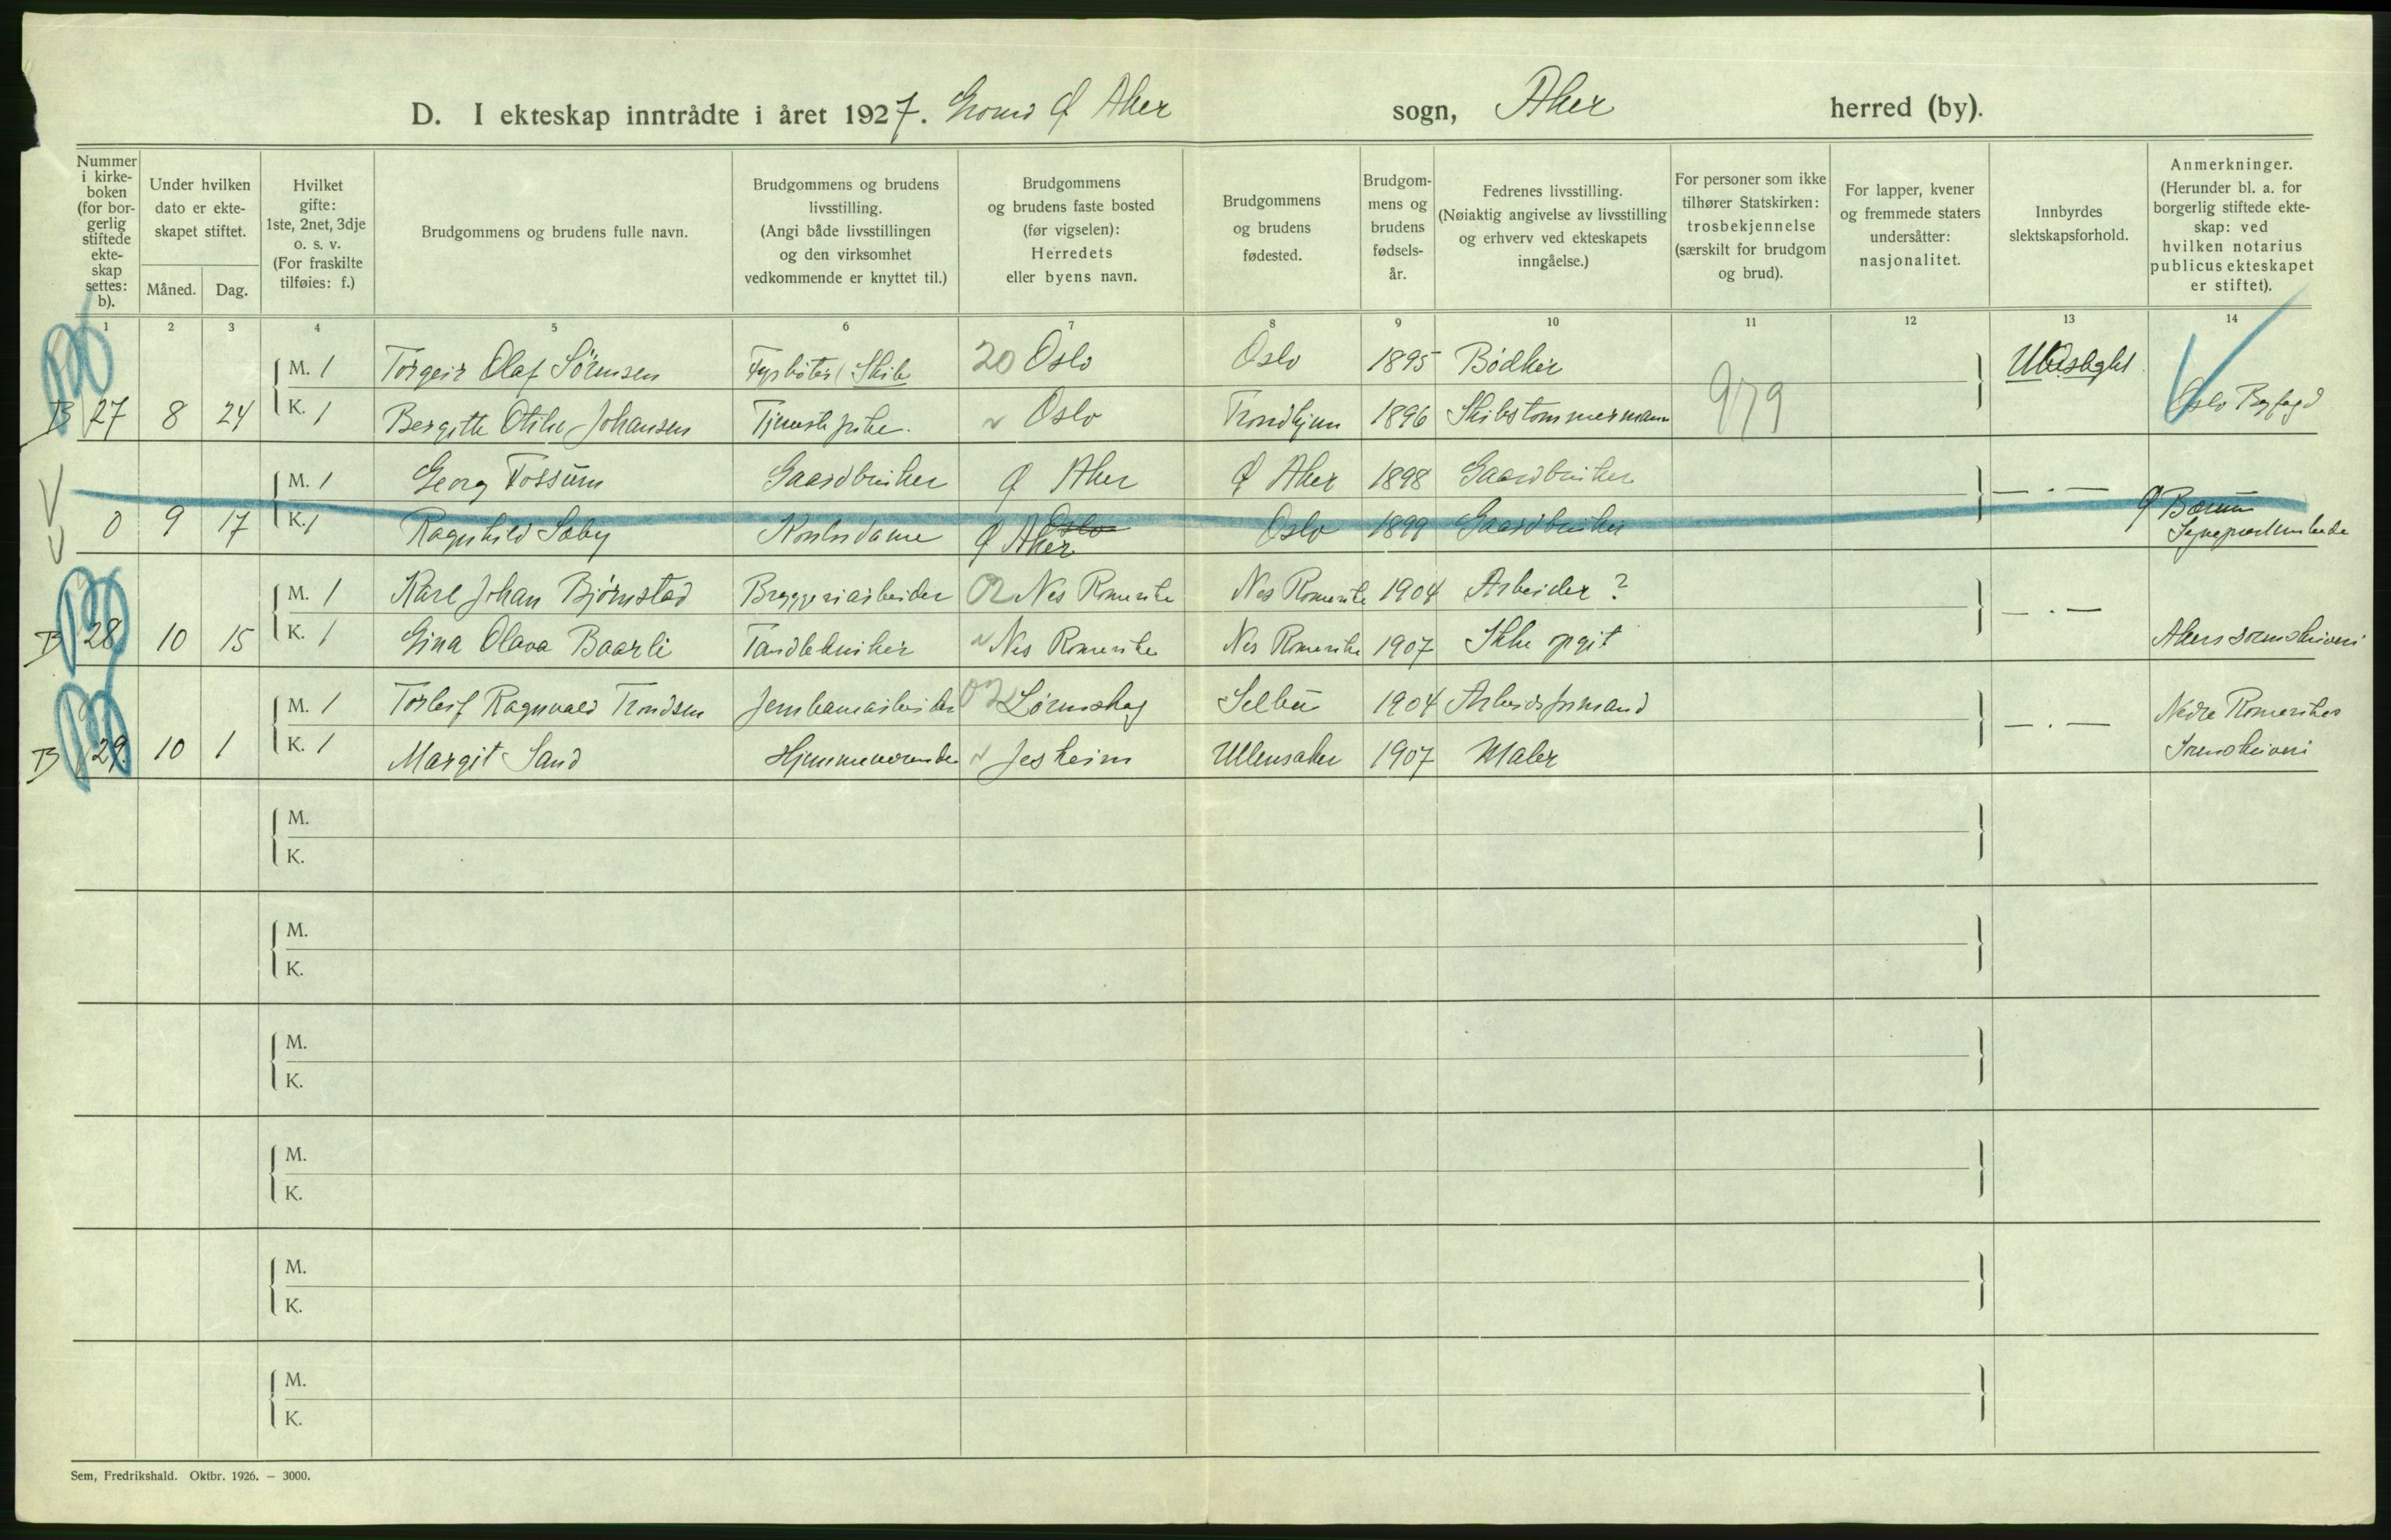 D. I ekteskap inntrådte i året 1927. Grorud Ø Aker sogn, Aker herred (by).
Nummer i kirkeboken (for borgerlig stiftede ekteskap settes: b).
Under hvilken dato er ekteskapet stiftet.
Måned. Dag.
Hvilket gifte: 1ste, 2net, 3dje o. s. v. (For fraskilte tilføies: f.)
Brudgommens og brudens fulle navn.
Brudgommens og brudens livsstilling. (Angi både livsstillingen og den virksomhet vedkommende er knyttet til.)
Brudgommens og brudens faste bosted (før vigselen): Herredets eller byens navn.
Brudgommens og brudens fødested.
Brudgommens og brudens fødselsår.
Fedrenes livsstilling. (Nøiaktig angivelse av livsstilling og erhverv ved ekteskapets inngåelse.)
For personer som ikke tilhører Statskirken: trosbekjennelse (særskilt for brudgom og brud).
For lapper, kvener og fremmede staters undersåtter: nasjonalitet.
Innbyrdes slektskapsforhold.
Anmerkninger. (Herunder bl. a. for borgerlig stiftede ekteskap: ved hvilken notarius publicus ekteskapet er stiftet).
1 2 3 4 5 6 7 8 9 10 11 12 13 14
M. 1 Torgeir Olaf Sörensen Fyrböter Skib 20 Oslo Oslo 1895 Bödker Ubeslegtet
B 27 8 24 K. 1 Bergitte Otilie Johansen Tjenestepike. Oslo Trondhjem 1896 Skibstømmermann 979 Oslo Byfogd
M. 1 Georg Fossum Gaardbruker Ø Aker Ø Aker 1898 Gaardbruker — . —
0 9 17 K. 1 Ragnhild Sæby Kontordame Oslo Ø Aker Oslo 1899 Gaardbruker Ø Bærum
Sogneprestembede
M. 1 Kåre Johan Bjørnstad Bryggeriarbeider 02 Nes Romerike Nes Romerike 1904 Arbeider ? — . —
B 28 10 15 K. 1 Gina Olava Baarli Tandtekniker Nes Romerike Nes Romerike 1907 Ikke opgit Akers sorenskriveri
M. 1 Torleif Ragnvald Trondsen Jernbanearbeider 02 Lørenskog Selbu 1904 Arbeidsformand — . — Nedre Romerikes
B 29. 10 1 K. 1 Margit Sand Hjemmeværende Jesheim Ullensaker 1907 Maler Sorenskriveri
M.
K.
M.
K.
M.
K.
M.
K.
M.
K.
M.
K.
Sem, Fredrikshald. Oktbr. 1926. — 3000.